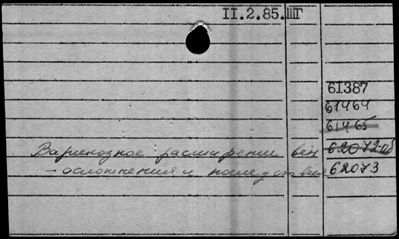 II.2.85.ШТ
61387
61464
61465
Варикозное расширении вен 62072
- осложнения и последствия 62073